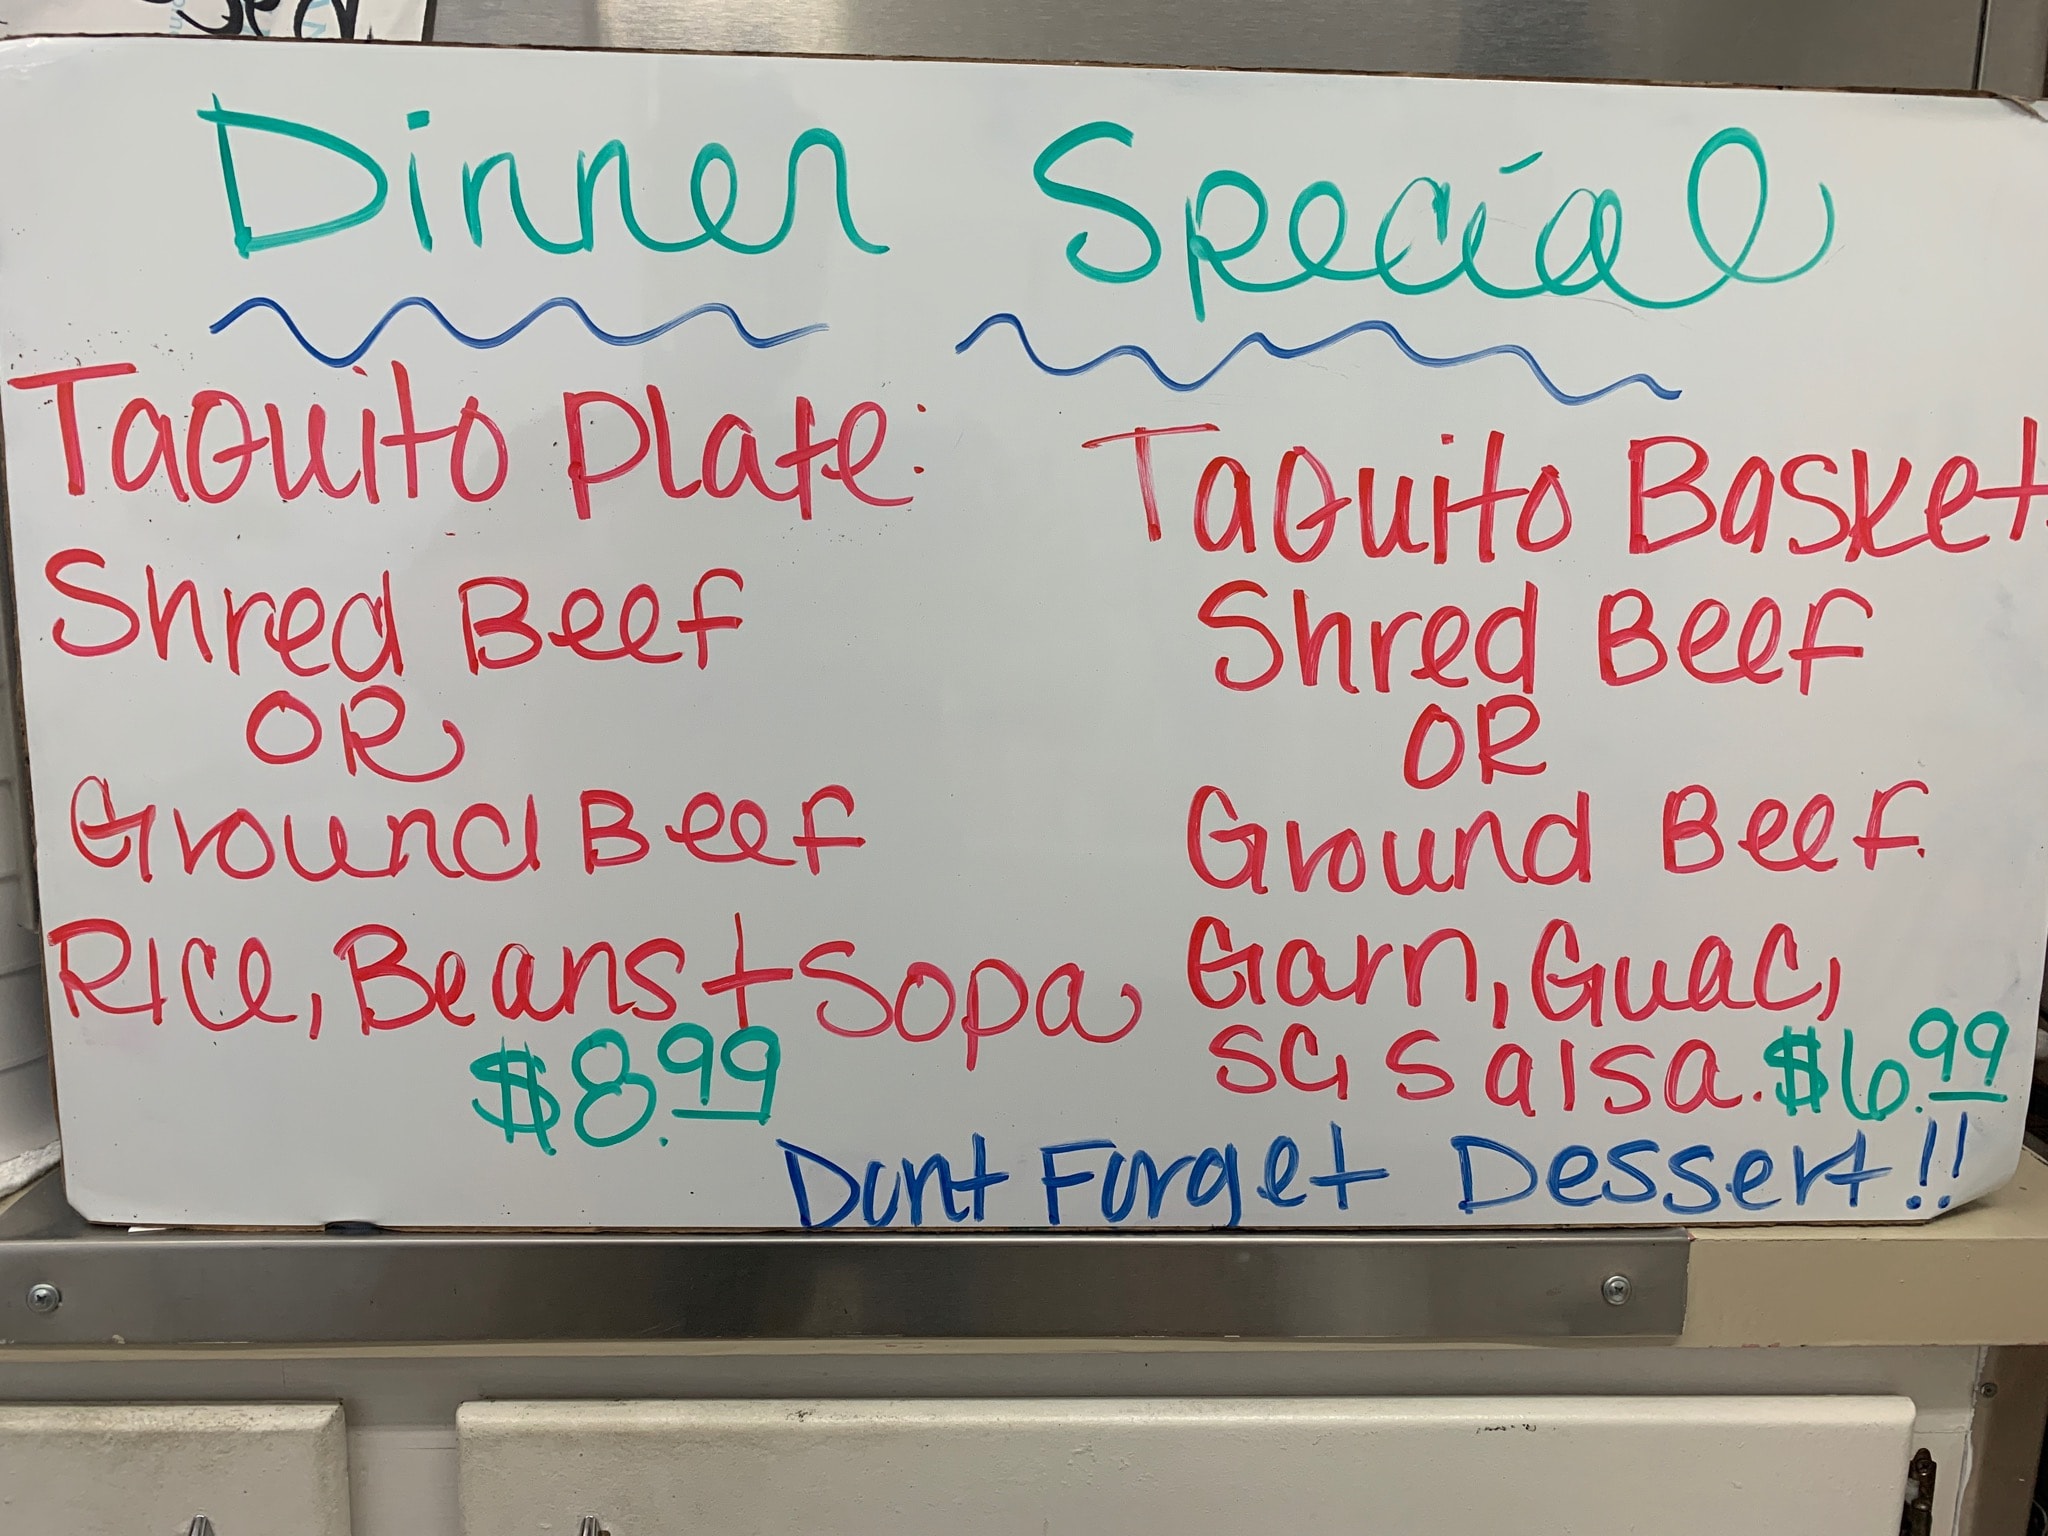 Dinner Special
Taquito Plate:
Shred Beef
OR
Ground Beef
Rice, Beans + Sopa
$8.99
Taquito Basket
Shred Beef
OR
Ground Beef.
Garn, Guac,
SC, Salsa. $6.99
Dont Forget Dessert!!